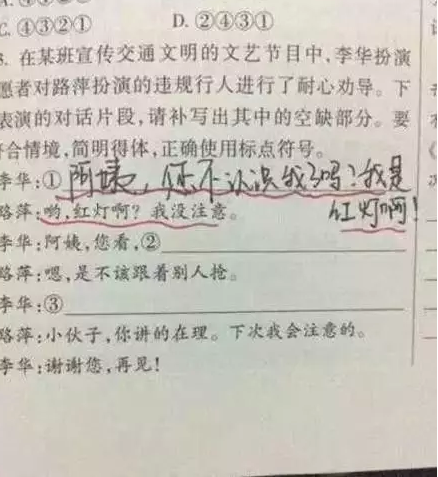 C. ④③②① D. ②④③①
3. 在某班宣传交通文明的文艺节目中,李华扮演
愿者对路萍扮演的违规行人进行了耐心劝导。下
表演的对话片段,请补写出其中的空缺部分。要
符合情境,简明得体,正确使用标点符号。
李华:①阿姨,你不认识我了吗?我是
红灯啊!
路萍:哟,红灯啊?我没注意。
李华:阿姨,您看,②
路萍:嗯,是不该跟着别人抢。
李华:③
路萍:小伙子,你讲的在理。下次我会注意的。
李华:谢谢您,再见!